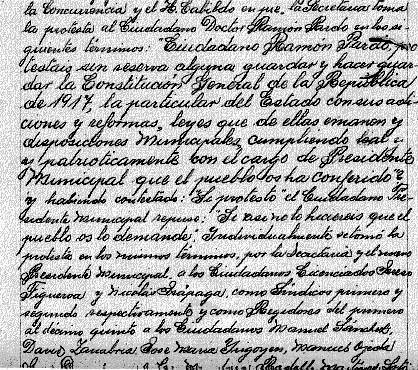 la Concurrencia y el H. Cabildo en pie, la Secretaria toma
la protesta al Ciudadano Doctor Ramon Pardo en los si-
guientes términos: "Ciudadano Ramon Pardo, pro
testais sin reserva alguna guardar y hacer guar
dar la Constitución General de la República
de 1917, la particular del Estado con sus adi
ciones y reformas, leyes que de ellas emanen y
disposiciones Municipales, cumpliendo leal
y patrioticamente con el cargo de Presidente
Municipal que el pueblo os ha conferido"
y habiendo contestado: "Si protesto" el Ciudadano Pre-
sidente Municipal repuso: "Si asi no lo hacereis que el
pueblo os lo demande". Individualmente se tomó la
protesta en los mismos términos, por la Secretaria y el nuevo
Presidente Municipal, a los Ciudadanos Licenciados
Figueroa y Nicolás como Síndicos primero y
segundo respectivamente y como Regidores del primero
al decimo quinto a los Ciudadanos Manuel Sánchez,
David Zanabria, Jose Maria Yrigoyen, Manuel Ojeda